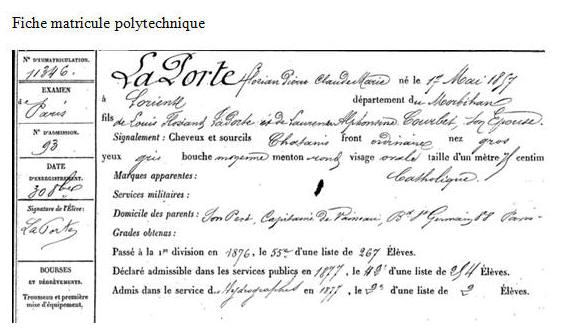 Fiche matricule polytechnique
N° D'IMMATRICULATION.
11346.
EXAMEN
de
Paris
N° D'ADMISSION.
93
DATE
D'ENREGISTREMENT.
30 8bre
Signature de l'Élève:
LaPorte
BOURSES
ET DÉGRÈVEMENTS.
Trousseau et première
mise d'équipement.
LaPorte Florian Pierre Claude Marie né le 17 Mai 1857
à Lorient département du Morbihan
fils de Louis LaPorte et de Laurence Alphonsine Courbet, son Epouse.
Signalement: Cheveux et sourcils Chatains front ordinaire nez gros
yeux gris bouche moyenne menton rond visage ovale taille d'un mètre centim
Marques apparentes: Catholique.
Services militaires:
Domicile des parents: Son Père, Capitaine de Vaisseau, Bd St Germain, 88 Paris
Grades obtenus:
Passé à la 1re division en 1876, le 55e d'une liste de 267 Élèves.
Déclaré admissible dans les services publics en 1877, le d'une liste de 254 Élèves.
Admis dans le service des Hydrographes en 1877, le 2e d'une liste de 2 Élèves.